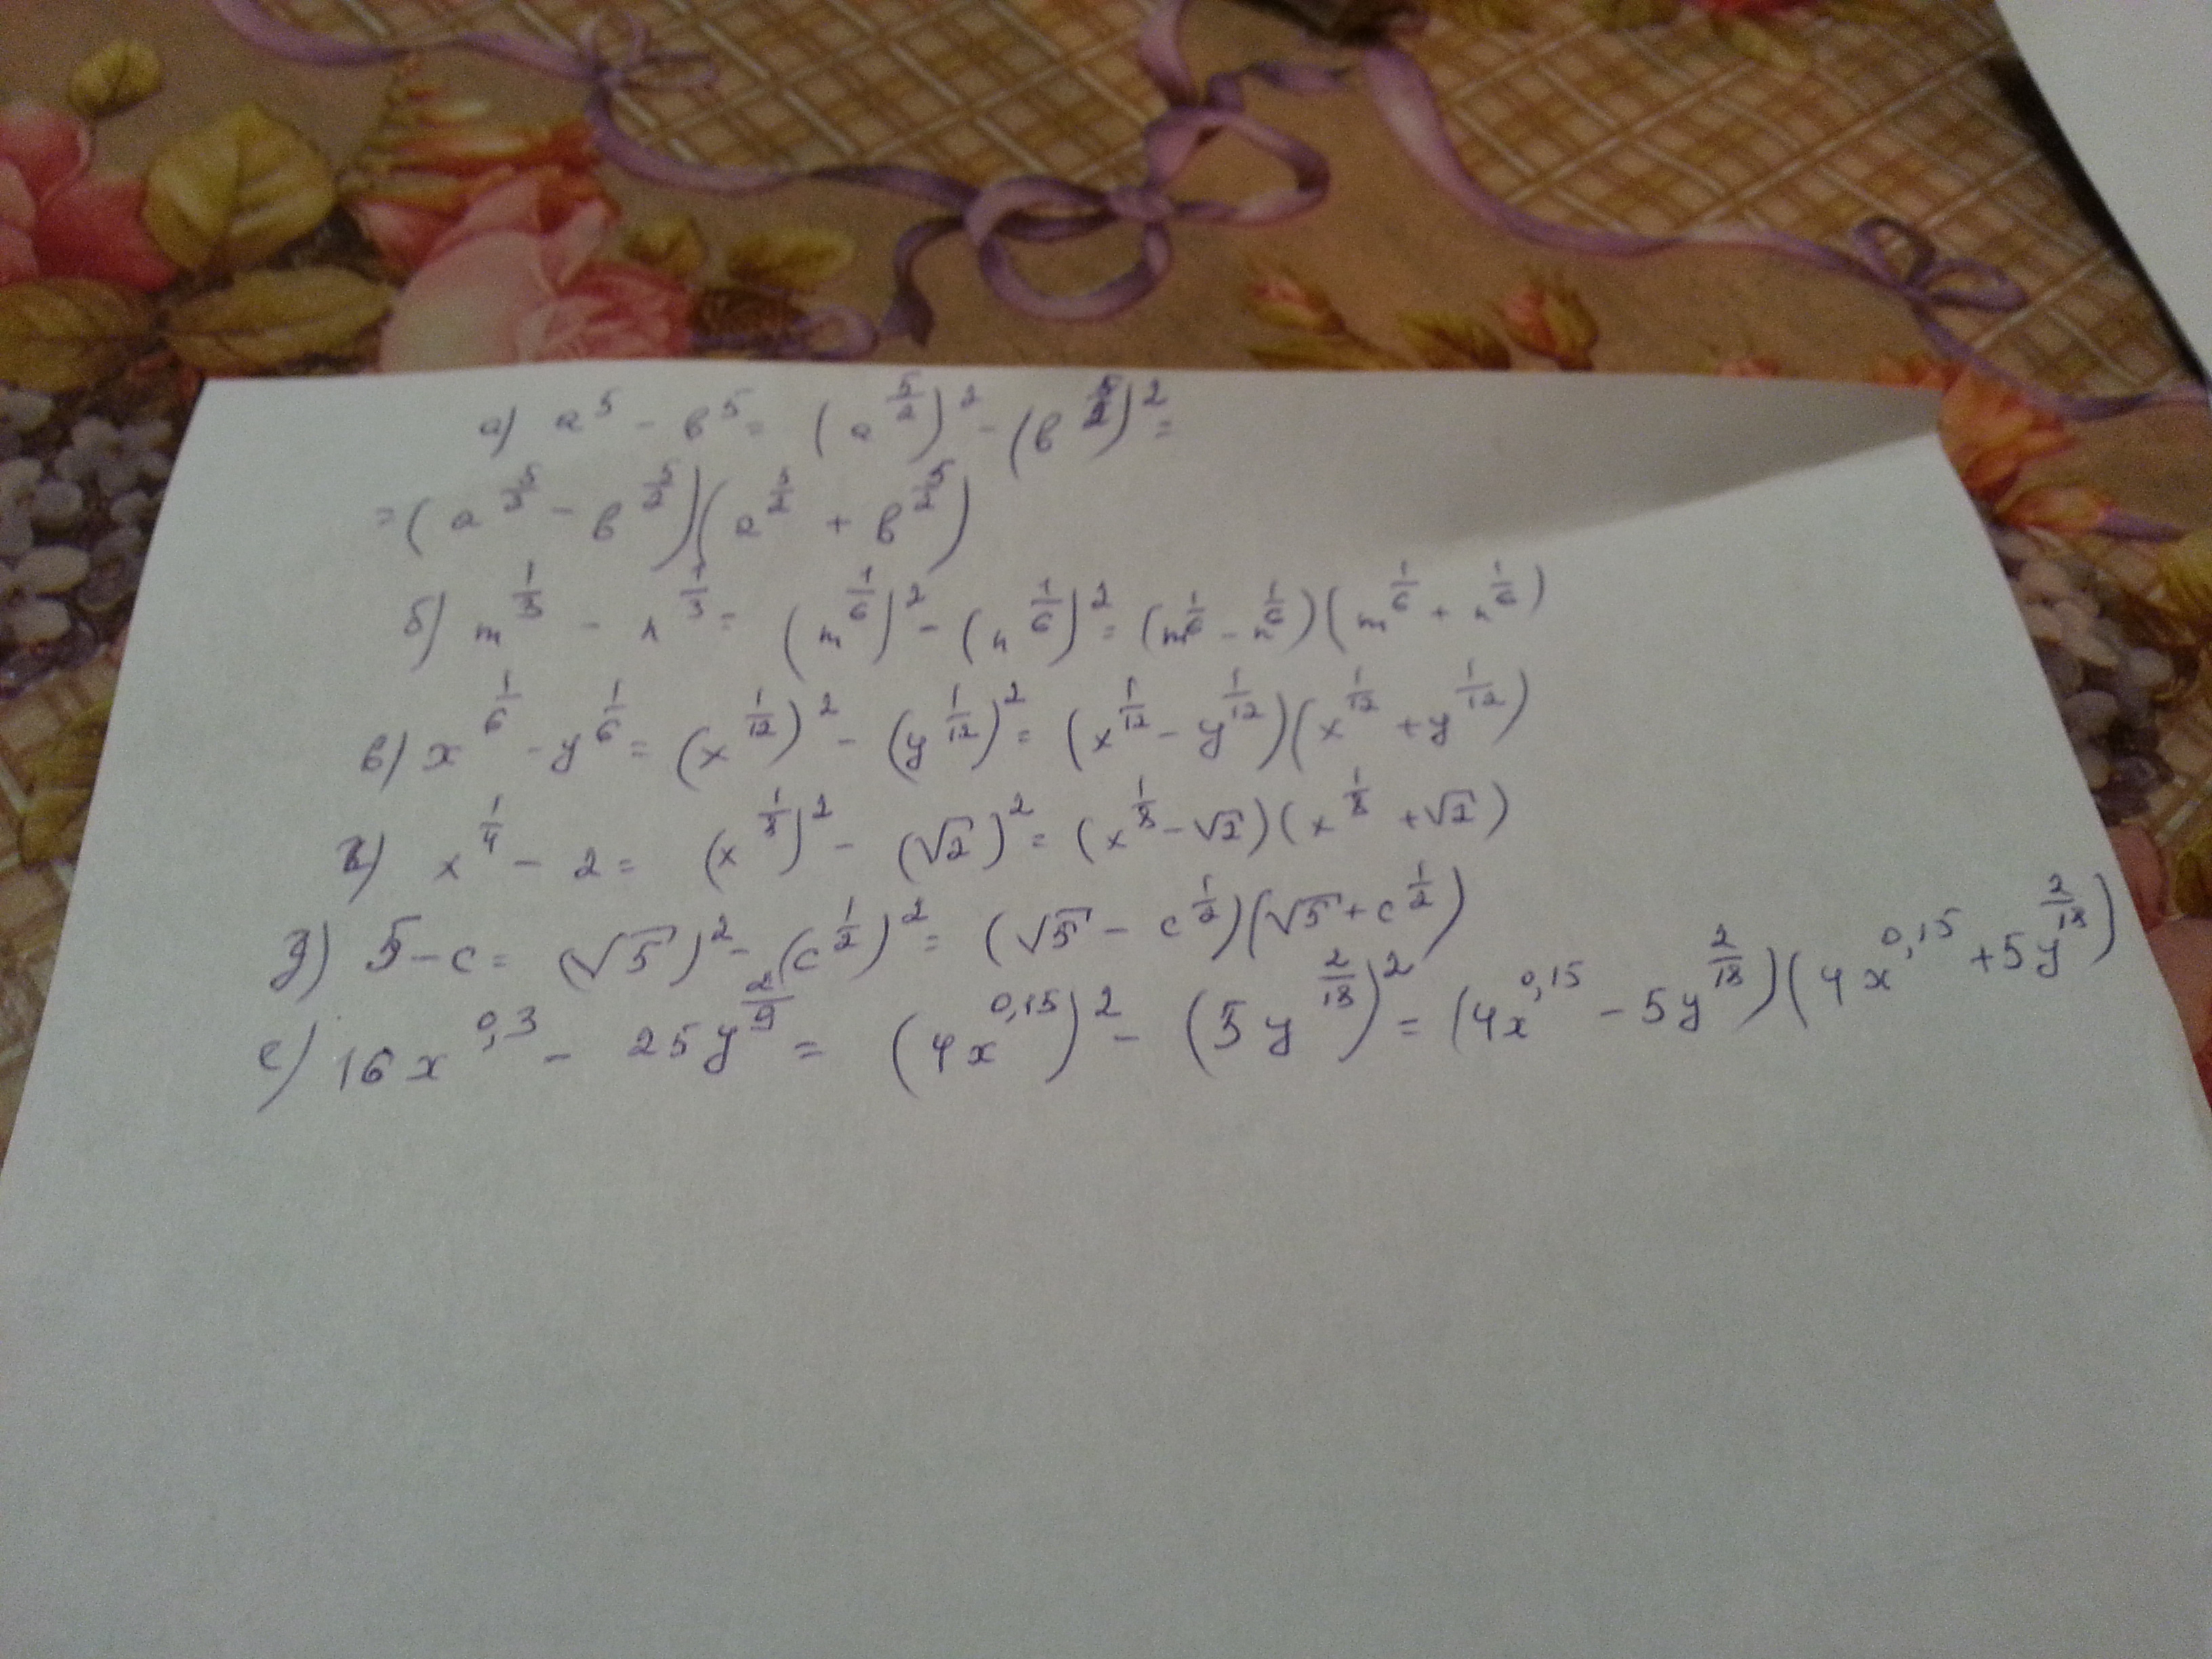 а) a^5 - b^5 = (a^{5/2})^2 - (b^{5/2})^2 =
= (a^{5/2} - b^{5/2})(a^{5/2} + b^{5/2})
б) m^{1/3} - n^{1/3} = (m^{1/6})^2 - (n^{1/6})^2 = (m^{1/6} - n^{1/6})(m^{1/6} + n^{1/6})
в) x^{1/6} - y^{1/6} = (x^{1/12})^2 - (y^{1/12})^2 = (x^{1/12} - y^{1/12})(x^{1/12} + y^{1/12})
г) x^{1/4} - 2 = (x^{1/8})^2 - (√2)^2 = (x^{1/8} - √2)(x^{1/8} + √2)
д) 5 - c = (√5)^2 - (c^{1/2})^2 = (√5 - c^{1/2})(√5 + c^{1/2})
е) 16x^{0,3} - 25y^{2/9} = (4x^{0,15})^2 - (5y^{2/18})^2 = (4x^{0,15} - 5y^{2/18})(4x^{0,15} + 5y^{2/18})